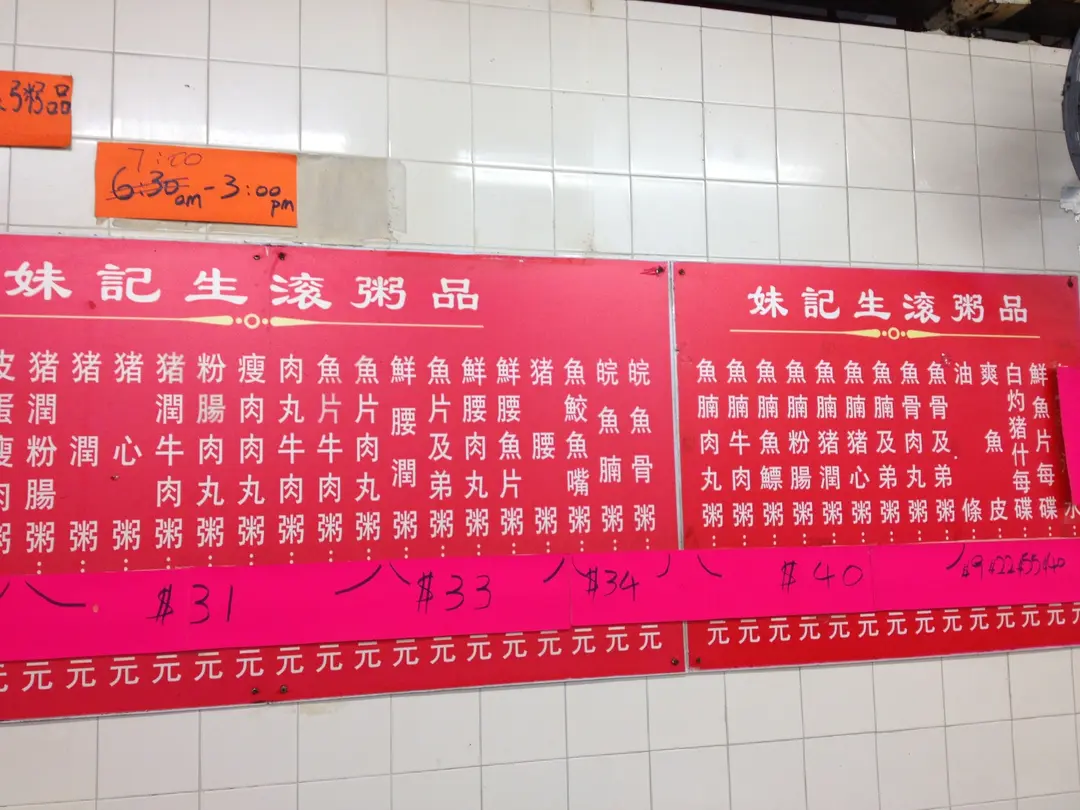 粥品
7:00
6:30am-3:00pm
妹記生滾粥品
皮蛋瘦肉粥
猪潤粉腸粥
猪潤粥
猪心粥
猪潤牛肉粥
粉腸肉丸粥
瘦肉肉丸粥
肉丸牛肉粥
魚片牛肉粥
魚片肉丸粥
鮮腰潤粥
魚片及弟粥
鮮腰肉丸粥
鮮腰魚片粥
猪腰粥
魚鮫魚嘴粥
皖魚腩粥
皖魚骨粥
$31 $33 $34
元元元元元元元元元元元元元元元元元元
妹記生滾粥品
魚腩肉丸粥
魚腩牛肉粥
魚腩魚鰾粥
魚腩粉腸粥
魚腩猪潤粥
魚腩猪心粥
魚腩及弟粥
魚骨肉丸粥
魚骨及弟粥
油條
爽魚皮
白灼猪什每碟
鮮魚片每碟
$40 $9 $22 $55 $40
元元元元元元元元元元元元元